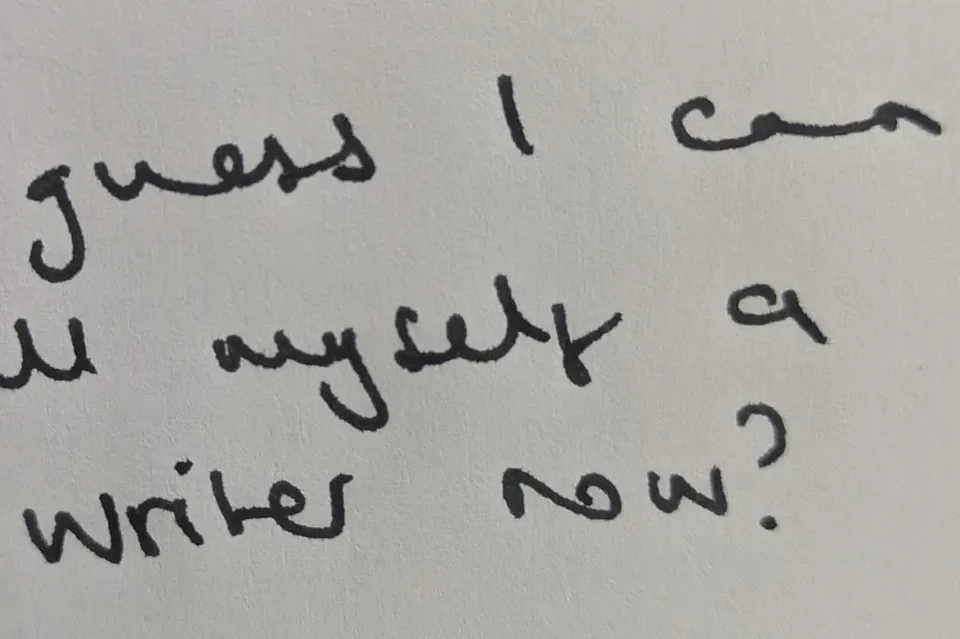 guess I can
ll myself a
writer now?